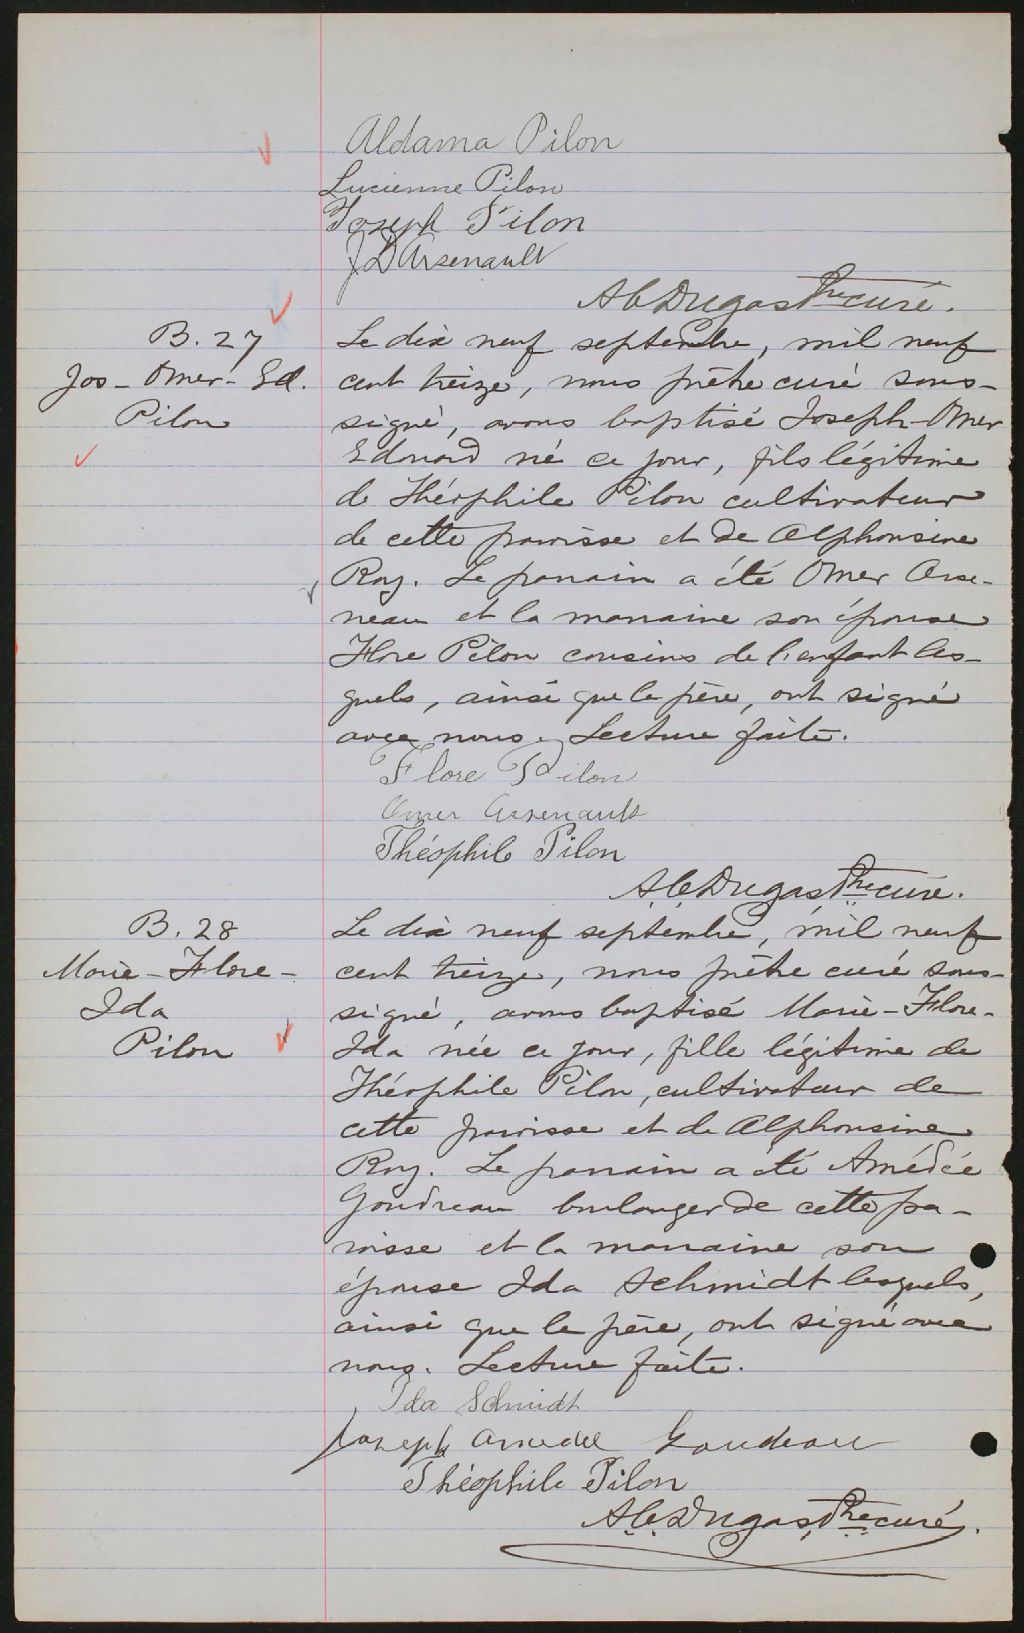 Aldama Pilon
Lucienne Pilon
Joseph Pilon
J D Arsenault
A C Dugas Ptre curé.
B. 27
Jos - Omer - Ed.
Pilon
Le dix neuf septembre, mil neuf
cent treize, nous prêtre curé sous-
signé, avons baptisé Joseph-Omer
Edouard né ce jour, fils légitime
de Théophile Pilon cultivateur
de cette paroisse et de Alphonsine
Roy. Le parrain a été Omer Arse-
neau et la marraine son épouse
Flore Pilon cousins de l'enfant les-
quels, ainsi que le père, ont signé
avec nous. Lecture faite.
Flore Pilon
Omer Arsenault
Théophile Pilon
A.C. Dugas, Ptre curé.
B. 28
Marie - Flore -
Ida
Pilon
Le dix neuf septembre, mil neuf
cent treize, nous prêtre curé sous-
signé, avons baptisé Marie-Flore-
Ida née ce jour, fille légitime de
Théophile Pilon, cultivateur de
cette paroisse et de Alphonsine
Roy. Le parrain a été Amédée
Goudreau boulanger de cette pa-
roisse et la marraine son
épouse Ida Schmidt lesquels,
ainsi que le père, ont signé avec
nous. Lecture faite.
Ida Schmidt
Joseph Amedee Goudreau
Théophile Pilon
A.C. Dugas, Ptre curé.